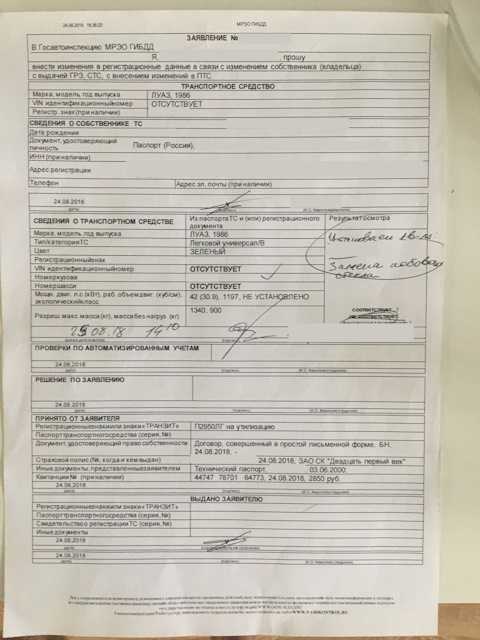 24.08.2018 МРЭО ГИБДД
ЗАЯВЛЕНИЕ №
В Госавтоинспекцию МРЭО ГИБДД
Я, прошу
внести изменения в регистрационные данные в связи с изменением собственника (владельца)
с выдачей ГРЗ, СТС, с внесением изменений в ПТС
ТРАНСПОРТНОЕ СРЕДСТВО
Марка, модель, год выпуска ЛУАЗ, 1986
VIN идентификационный номер ОТСУТСТВУЕТ
Регистр. знак (при наличии)
СВЕДЕНИЯ О СОБСТВЕННИКЕ ТС
Дата рождения
Документ, удостоверяющий личность Паспорт (России),
ИНН (при наличии)
Адрес регистрации
Телефон Адрес эл. почты (при наличии)
24.08.2018
дата подпись
СВЕДЕНИЯ О ТРАНСПОРТНОМ СРЕДСТВЕ Из паспорта ТС и (или) регистрационного документа Результат осмотра
Марка, модель, год выпуска ЛУАЗ, 1986
Тип/категория ТС Легковой универсал/В
Цвет ЗЕЛЕНЫЙ
Регистрационный знак
VIN идентификационный номер ОТСУТСТВУЕТ
Номер кузова
Номер шасси ОТСУТСТВУЕТ
Мощн. двиг. л.с.(кВт), раб. объем двиг. (куб/см), экологический класс 42 (30.9), 1197, НЕ УСТАНОВЛЕНО
Разреш. макс. масса (кг), масса без нагруз. (кг) 1340, 900
Замена лобового стекла
СООТВЕТСТВУЕТ
НЕ СООТВЕТСТВУЕТ
25.08.18 14 10
ПРОВЕРКИ ПО АВТОМАТИЗИРОВАННЫМ УЧЕТАМ
24.08.2018
дата подпись
РЕШЕНИЕ ПО ЗАЯВЛЕНИЮ
24.08.2018
дата подпись
ПРИНЯТО ОТ ЗАЯВИТЕЛЯ
Регистрационные знаки или знаки «ТРАНЗИТ» П2950ЛГ на утилизацию
Паспорт транспортного средства (серия, №)
Документ, удостоверяющий право собственности Договор, совершенный в простой письменной форме, БН, 24.08.2018, -
Страховой полис (№, когда и кем выдан) 24.08.2018, ЗАО СК "Двадцать первый век"
Иные документы, представленные заявителем Технический паспорт, 03.06.2000;
Квитанции № (при наличии) 44747 78701 64773, 24.08.2018, 2850 руб.
24.08.2018
дата подпись
ВЫДАНО ЗАЯВИТЕЛЮ
Регистрационные знаки или знаки «ТРАНЗИТ»
Паспорт транспортного средства (серия, №)
Свидетельство о регистрации ТС (серия, №)
Иные документы
24.08.2018
дата
24.08.2018
дата подпись